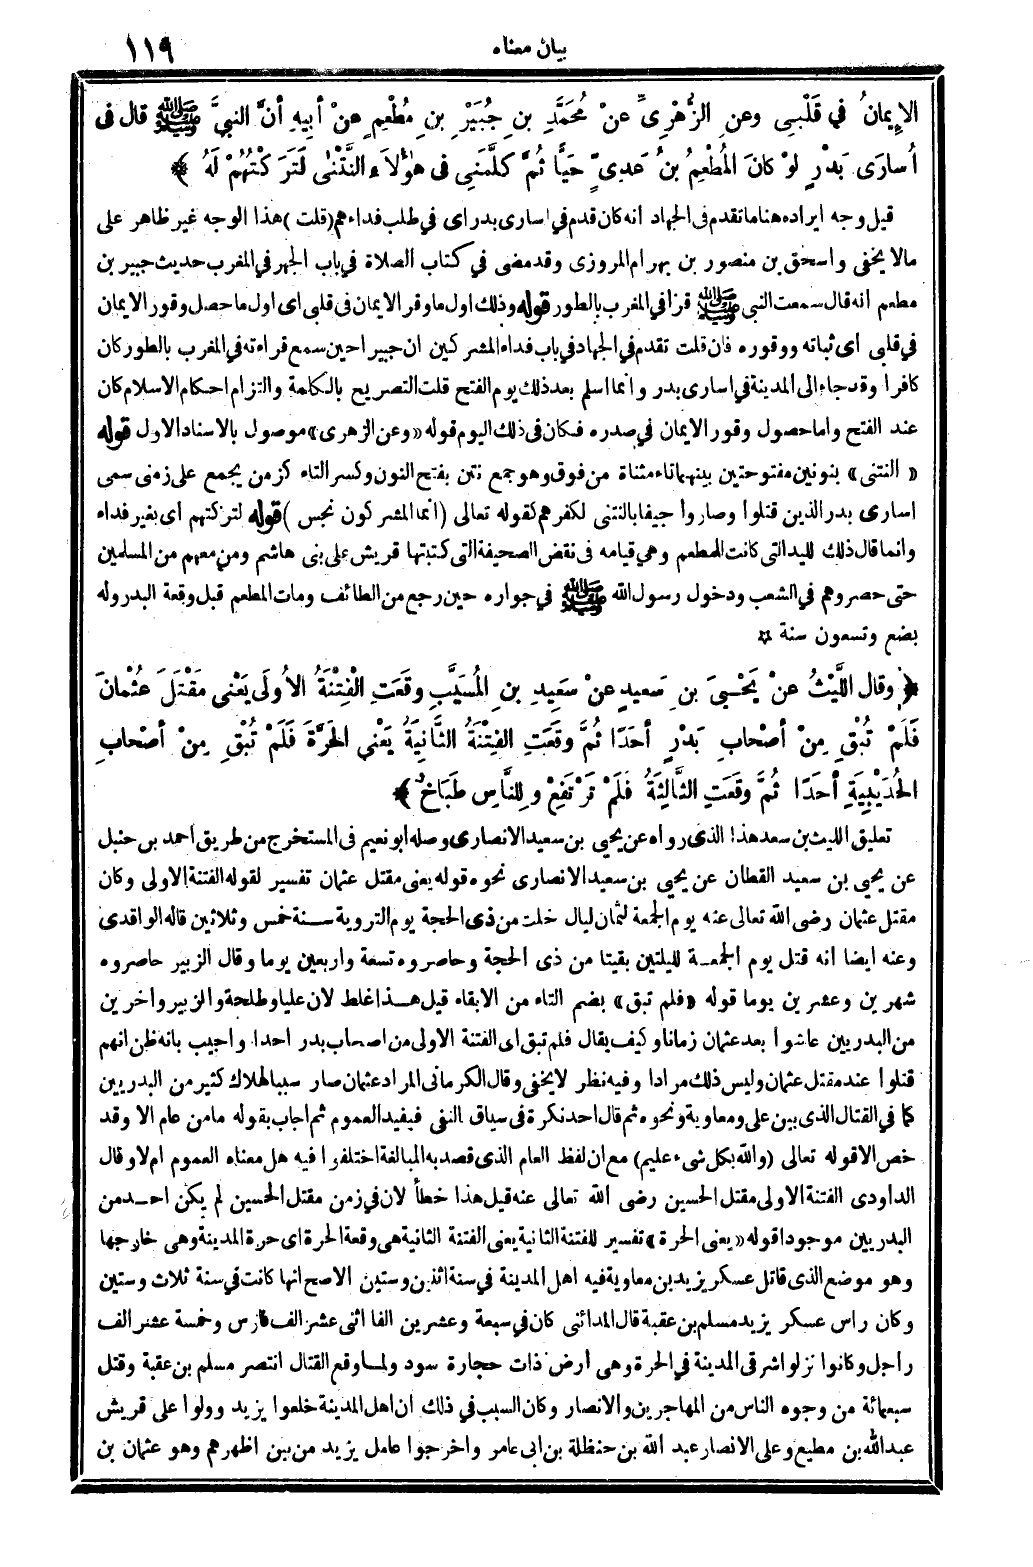 بيان معناه ١١٩
الإِيمانُ في قَلْبِي وعنِ الزُّهْرِىِّ عنْ مُحَمَّدِ بنِ جُبَيْرِ بنِ مُطْعِمٍ عنْ أبِيهِ أنَّ النبيَّ ﷺ قال فى
أُسارَى بَدْرٍ لوْ كانَ المُطْعِمُ بنُ عَدِىٍّ حَيًّا ثُمَّ كلَّمَنِى فى هٰؤُلاَءِ النَّتْنٰى لَتَرَكْتُهُمْ لَهُ ﴾
قيل وجه ايراده هنا ما تقدم فى الجهاد انه كان قدم في اسارى بدر اى في طلب فداءهم (قلت) هذا الوجه غير ظاهر على
مالا يخفى واسحق بن منصور بن بهرام المروزى وقد مضى في كتاب الصلاة في باب الجهر في المغرب حديث جبير بن
مطعم انه قال سمعت النبى ﷺ قرأ في المغرب بالطور قوله وذلك اول ما وقر الايمان فى قلبى اى اول ما حصل وقور الايمان
في قلبى أى ثباته ووقوره فان قلت تقدم في الجهاد في باب فداء المشركين ان جبيرا حين سمع قراءته في المغرب بالطور كان
كافرا وقد جاء الى المدينة في اسارى بدر وانما اسلم بعد ذلك يوم الفتح قلت التصريح بالكلمة والتزام احكام الاسلام كان
عند الفتح واما حصول وقور الايمان في صدره فكان في ذلك اليوم قوله «وعن الزهرى» موصول بالاسناد الاول قوله
«النتنى» بنونين مفتوحتين بينهما تاء مثناة من فوق وهو جمع نتن بفتح النون وكسر التاء كزمن يجمع على زمنى سمى
اسارى بدر الذين قتلوا وصاروا جيفا بالنتنى لكفرهم كقوله تعالى (انما المشركون نجس) قوله لتركتهم اى بغير فداء
وانما قال ذلك لليد التى كانت للمطعم وهي قيامه فى نقض الصحيفة التى كتبتها قريش على بنى هاشم ومن معهم من المسلمين
حتى حصروهم في الشعب ودخول رسول الله ﷺ في جواره حين رجع من الطائف ومات المطعم قبل وقعة البدر وله
بضع وتسعون سنة ¤
﴿ وقال اللَّيْثُ عنْ يَحْيىَ بنِ سَعِيدٍ عنْ سَعِيدِ بنِ المُسَيَّبِ وقَعَتِ الْفِتْنَةُ الأُولَى يَعْنى مَقْتَلَ عُثْمانَ
فَلَمْ تُبْقِ مِنْ أصْحابِ بَدْرٍ أحَدًا ثُمَّ وقَعَتِ الفِتْنَةُ الثَّانِيَةُ يَعْنى الحَرَّةَ فَلَمْ تُبْقِ مِنْ أصْحابِ
الحُدَيْبِيَةِ أحَدًا ثُمَّ وقَعَتِ الثَّالِثَةُ فَلَمْ تَرْتَفِعْ ولِلنَّاسِ طَبَاخٌ ﴾
تعليق الليث بن سعد هذا الذى رواه عن يحيى بن سعيد الانصارى وصله ابو نعيم فى المستخرج من طريق احمد بن حنبل
عن يحيى بن سعيد القطان عن يحيى بن سعيد الانصارى نحوه قوله يعنى مقتل عثمان تفسير لقوله الفتنة الاولى وكان
مقتل عثمان رضى الله تعالى عنه يوم الجمعة لثمان ليال خلت من ذى الحجة يوم التروية سنة خمس وثلاثين قاله الواقدى
وعنه ايضا انه قتل يوم الجمعة لليلتين بقيتا من ذى الحجة وحاصروه تسعة واربعين يوما وقال الزبير حاصروه
شهرين وعشرين يوما قوله «فلم تبق» بضم التاء من الابقاء قيل هذا غلط لان عليا وطلحة والزبير واخرين
من البدريين عاشوا بعد عثمان زمانا وكيف يقال فلم تبق اى الفتنة الاولى من اصحاب بدر احدا واجيب بانه ظن انهم
قتلوا عند مقتل عثمان وليس ذلك مرادا وفيه نظر لا يخفى وقال الكرمانى المراد عثمان صار سببا لهلاك كثير من البدريين
كما في القتال الذى بين على ومعاوية ونحوه ثم قال احد نكرة فى سياق النفى فيفيد العموم ثم اجاب بقوله ما من عام الا وقد
خص الا قوله تعالى (والله بكل شىء عليم) مع ان لفظ العام الذى قصد به المبالغة اختلفوا فيه هل معناه العموم ام لا وقال
الداودى الفتنة الاولى مقتل الحسين رضى الله تعالى عنه قيل هذا خطأ لان في زمن مقتل الحسين لم يكن احد من
البدريين موجودا قوله «يعنى الحرة» تفسير للفتنة الثانية يعنى الفتنة الثانية هى وقعة الحرة اى حرة المدينة وهى خارجها
وهو موضع الذى قاتل عسكر يزيد بن معاوية فيه اهل المدينة في سنة اثنين وستين الاصح انها كانت في سنة ثلاث وستين
وكان راس عسكر يزيد مسلم بن عقبة قال المدائنى كان في سبعة وعشرين الفا اثنى عشر الف فارس وخمسة عشر الف
راجل وكانوا نزلوا شرقى المدينة في الحرة وهى أرض ذات حجارة سود ولما وقع القتال انتصر مسلم بن عقبة وقتل
سبعمائة من وجوه الناس من المهاجرين والانصار وكان السبب في ذلك ان اهل المدينة خلعوا يزيد وولوا على قريش
عبد الله بن مطيع وعلى الانصار عبد الله بن حنظلة بن ابى عامر واخرجوا عامل يزيد من بين اظهرهم وهو عثمان بن